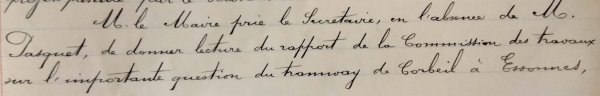 M. le Maire prie le Secrétaire, en l'absence de M.
Pasquet, de donner lecture du rapport de la Commission des travaux
sur l'importante question du tramway de Corbeil à Essonnes,